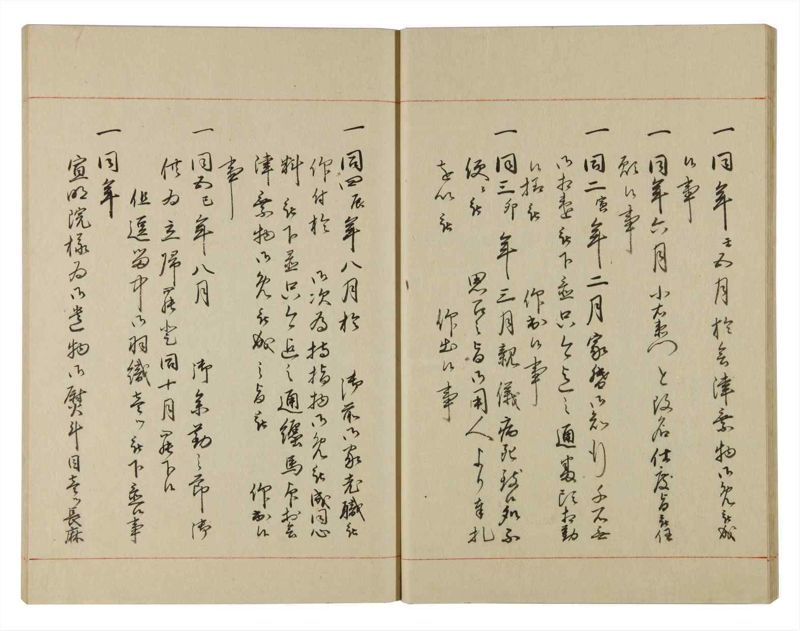 一同年壬五月於会津乗物御免被成
候事
一同年六月小右衛門と改名仕度旨奉
願候事
一同二寅年二月家督御知行千石無
御相違被下置只今迄之通
候様被 仰出候事
一同三卯年三月親儀病死
便 思召之旨御用人より奉札
を以被 仰出候事
一同四辰年八月於 御前御家老職被
仰付於 御次為持指物御免被成同心
料被下置只今迄之通
津乗物御免被成之旨被 仰出候
事
一同五巳年八月 御参勤之節御
供為立帰罷登同十月罷下候
但逗留中御羽織壱ツ被下置候事
一同年
宣明院様為御遺物御熨斗目壱ツ長麻